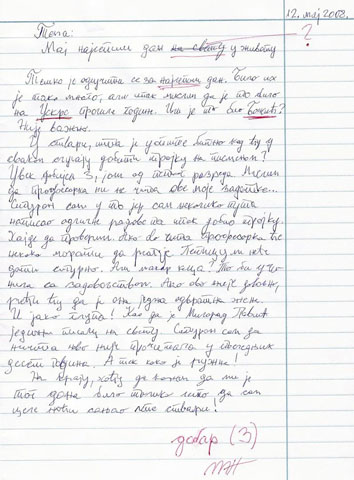 12. мај 2008.
Тема:
Мај најлепши дан на свету у животу
?
Тешко је одлучити се за најлепши дан. Било их
је тако много, али ипак мислим да је то било
на Ускрс прошле године. Или је то био Божић?
Није важно.
У ствари, шта је уопште битно кад ћу од
свакон добити тројку на писменом?
Увек двојка, 3, још од петог разреда. Мислим
да професорка ни не чита ове моје задатке...
Сигуран сам у то јер сам неколико пута
написао одличне радове па ипак добио тројку.
Хајде да проверим. Ако ово чита професорка ће
некако морати да реагује.
дати сигурно. Или макар кеца? То би учи-
нила са задовољством. Ако ово није довољно,
рећи ћу да је она једна одвратна жена.
И јако глупа! Као да је Милорад Павић
једини писац на свету. Сигуран сам да
ништа ново није прочитала у последњих
десет година. А тек како је ружна!
На крају, хоћу да кажем да ми је
тог дана било толико лепо да сам
целе ноћи сањао лепе ствари!
добар (3)